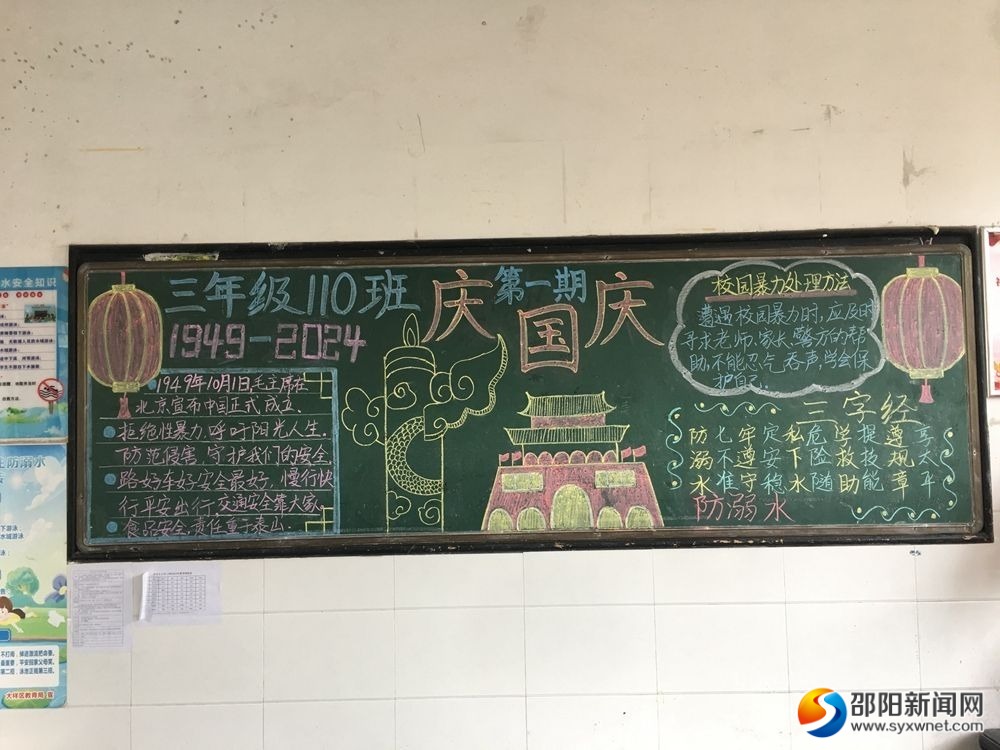 三年级110班
第一期
庆国庆
1949-2024
1949年10月1日,毛主席在
北京宣布中国正式成立.
拒绝性暴力,呼吁阳光人生.
防范侵害,守护我们的安全.
路好车好安全最好,慢行快
行平安出行,交通安全靠大家.
食品安全,责任重于泰山.
校园暴力处理方法
遭遇校园暴力时,应及时
寻求老师、家长、警方的帮
助,不能忍气吞声,学会保
护自己.
三字经
防七牢灾私危学提遵享
溺不遵安下险救技规太
水准守稳水随助能章平
防溺水
水安全知识
生防溺水
大祥区教育局 宣
邵阳新闻网
www.syxwnet.com